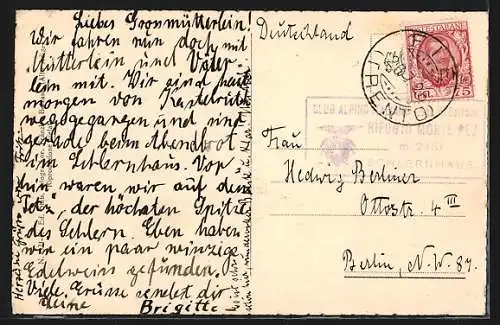 Liebes Grossmütterlein!
Wir fahren nun doch mit
Mütterlein und Väter-
lein mit. Wir sind heute
morgen von Kastelruth
weggegangen und sind
gerade beim Abendbrot
im Schlernhaus. Vor-
hin waren wir auf dem
Petz, der höchsten Spitze
des Schlern. Eben haben
wir ein paar winzige
Edelweiss gefunden.
Viele Grüsse sendet dir
deine Brigitte
Deutschland
Frau
Hedwig Berliner
Ottostr. 4 III
Berlin, N.W. 87.
CLUB ALPINO
RIFUGIO MONTE PEZ
SCHLERNHAUS
TRENTO